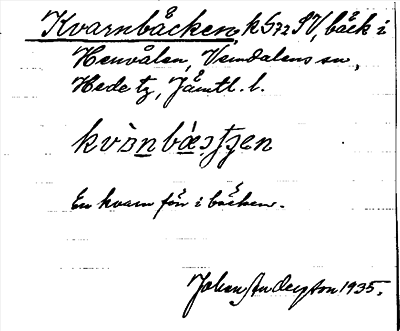 Kvarnbäcken, k G72 SV, bäck i
Henvålen, Vemdalens sn,
Hede tg, Jämtl. l.
kvὸn bæ̀ʃtʃen
En kvarn förr i bäcken.
Johan Anderzon 1935.